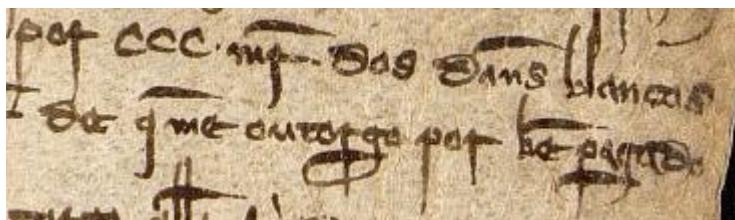 por CCC mrs dos dãns blancos
de q̄ me outorgo por bẽ pagado